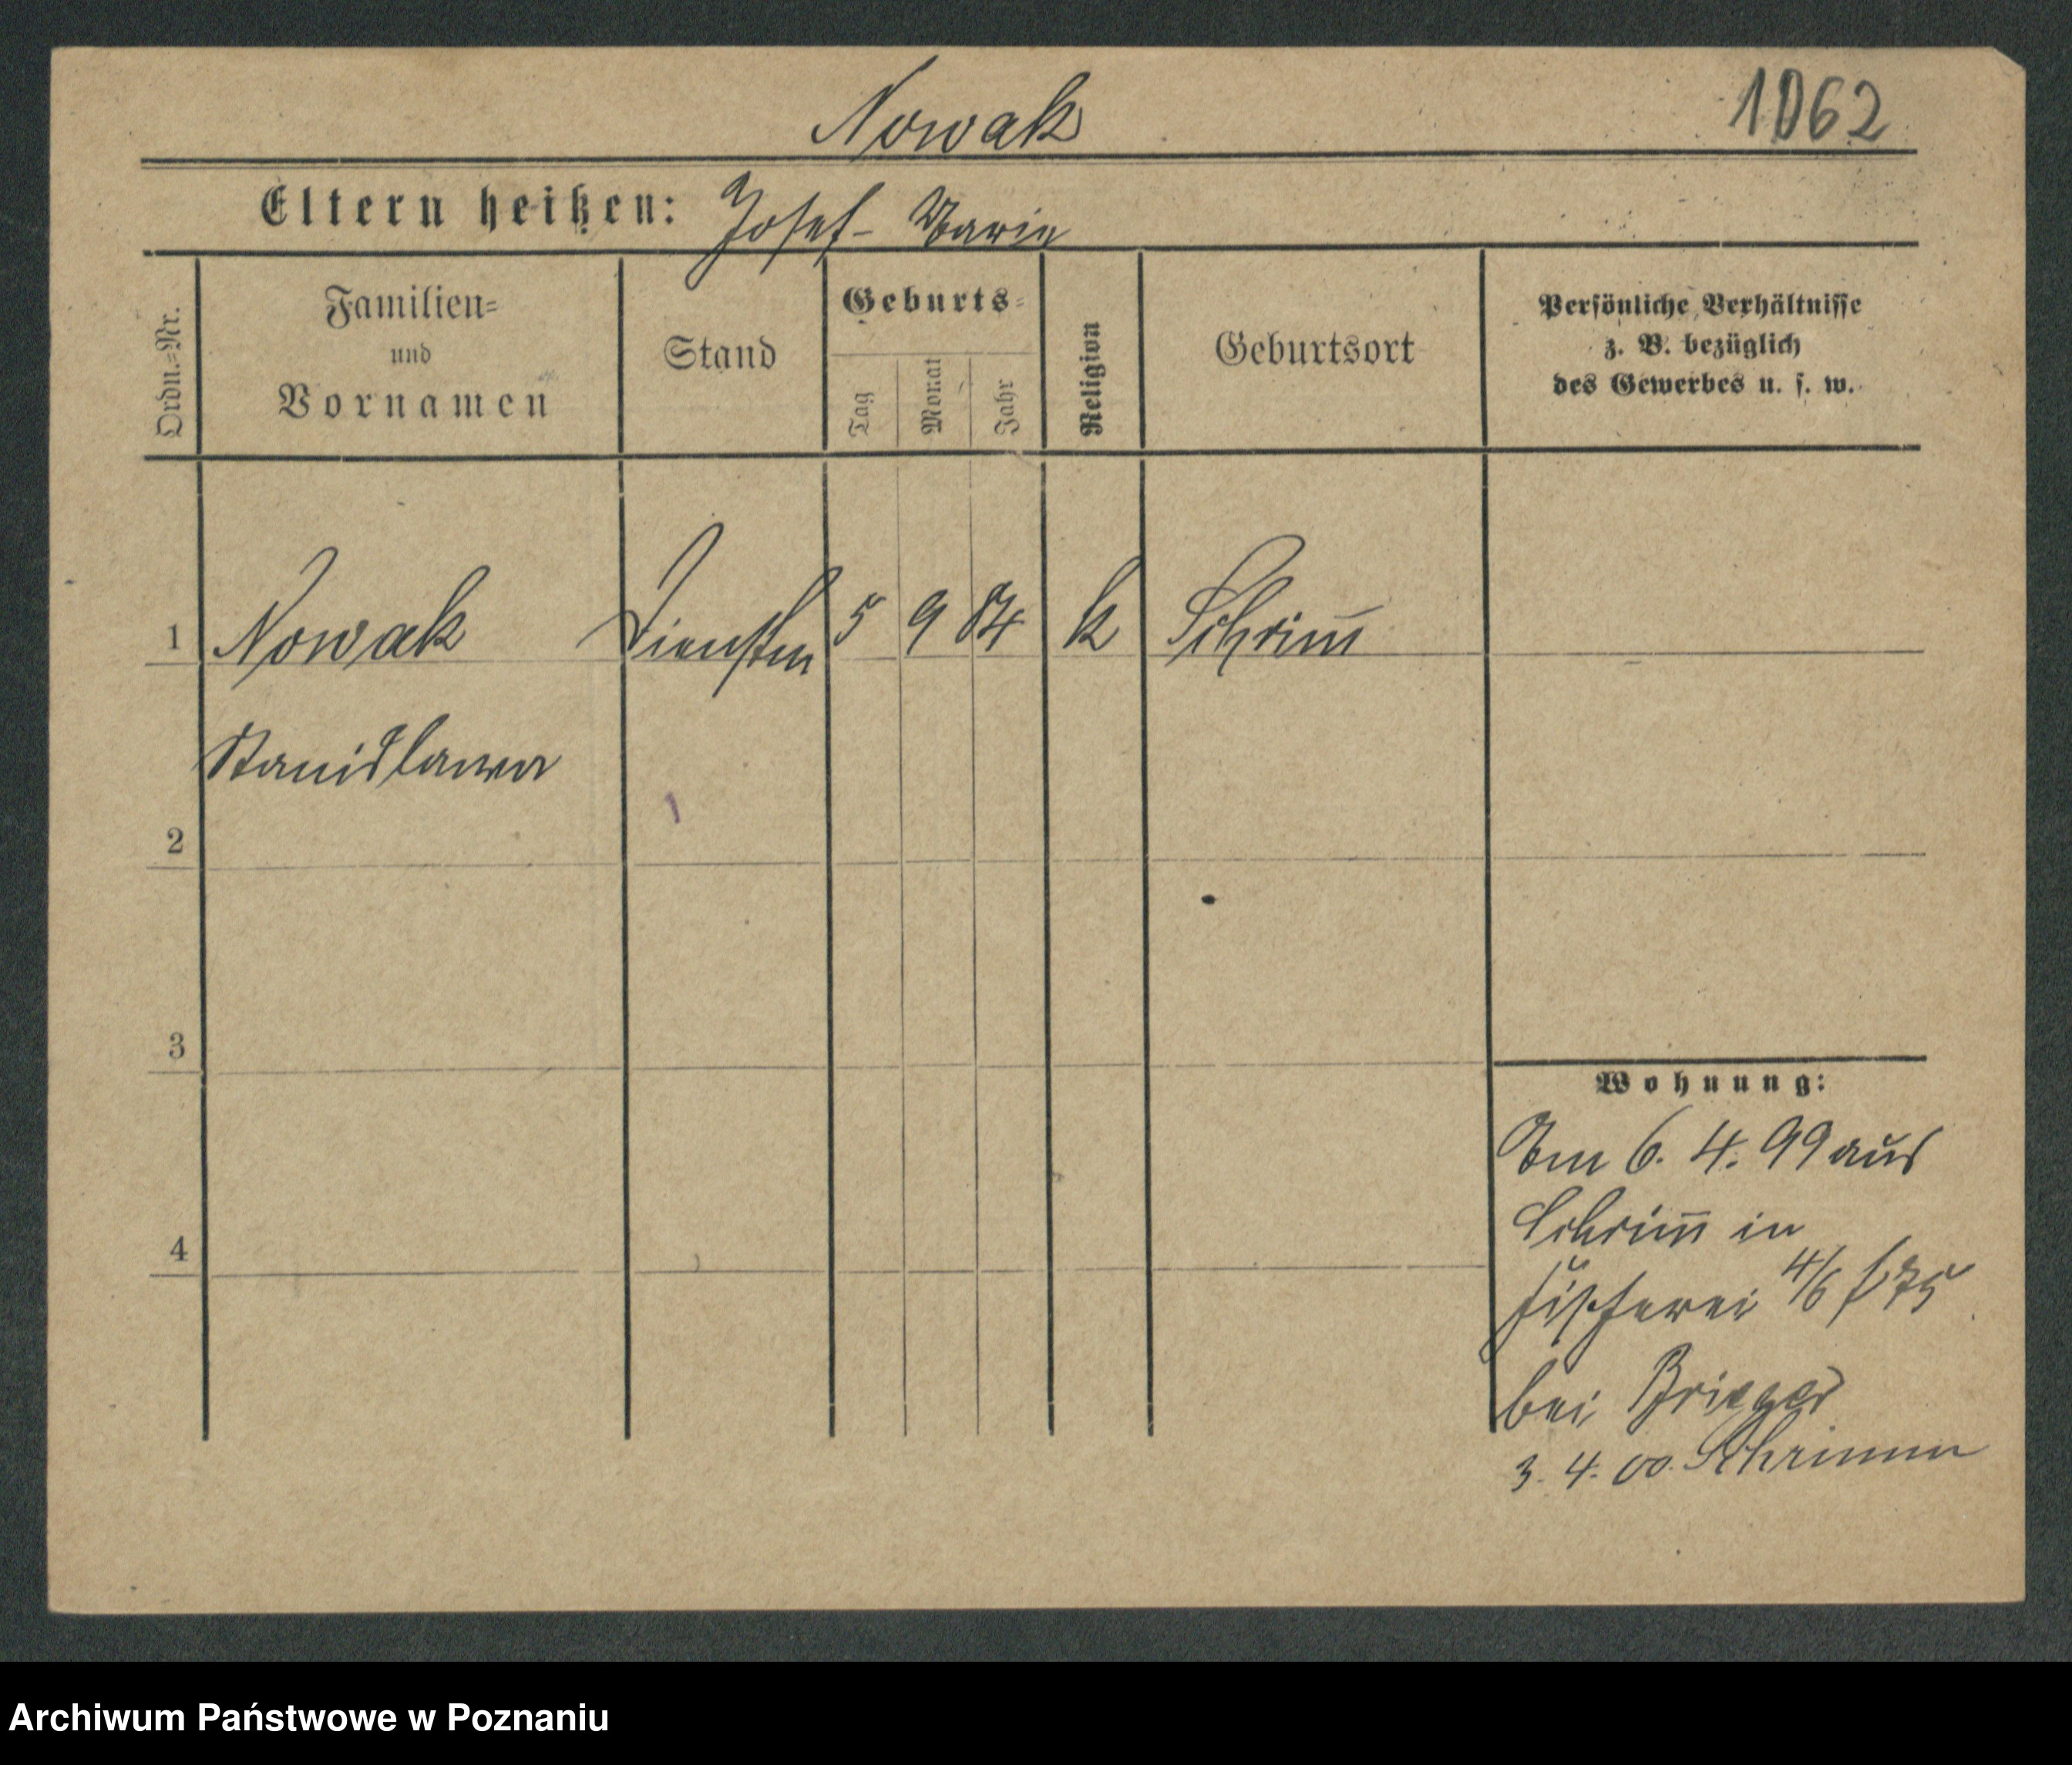 Nowak
1062
Eltern heißen: Josef - Marie
Ordn.=Nr.
Familien=
und
Vornamen
Stand
Geburts=
Tag
Monat
Jahr
Religion
Geburtsort
Persönliche Verhältnisse
z. B. bezüglich
des Gewerbes u. s. w.
1 Nowak 5 9 84 k Schrim̅
Stanislawa
2
3
4
Wohnung:
Am 6. 4. 99 aus
Schrim̅ in
Fischerei 4/6
bei Brieger
3. 4. 00. Schrimm
Archiwum Państwowe w Poznaniu